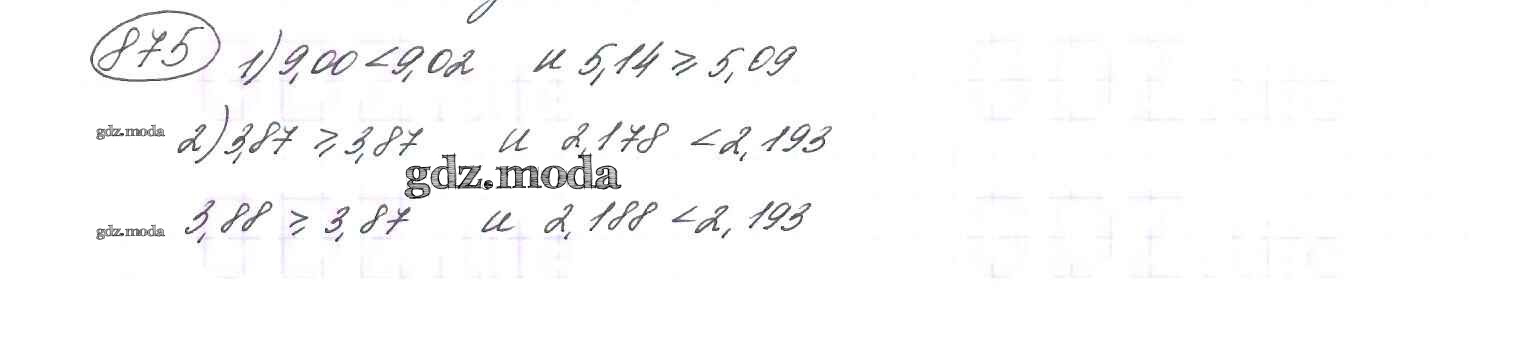 875 1) 9,00 < 9,02 и 5,14 ⩾ 5,09
gdz.moda 2) 3,87 ⩾ 3,87 и 2,178 < 2,193
gdz.moda
gdz.moda 3,88 ⩾ 3,87 и 2,188 < 2,193